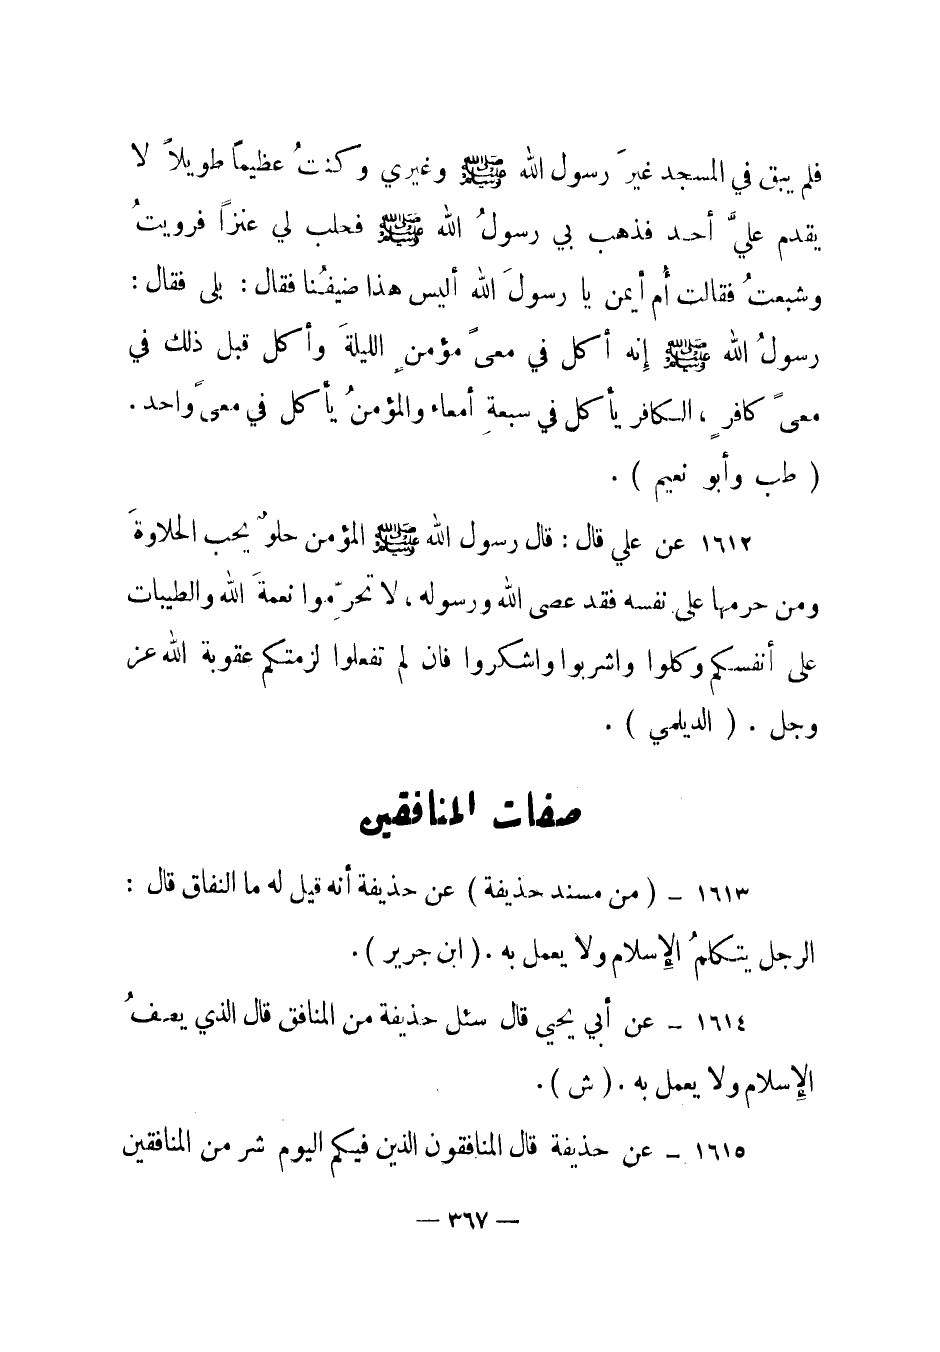 فلم يبق في المسجد غيرَ رسول الله ﷺ وغيري وكنتُ عظيماً طويلاً لا
يقدم عليَّ أحد فذهب بي رسولُ الله ﷺ فحلب لي عنزاً فرويتُ
وشبعتُ فقالت أُم أيمن يا رسولَ الله أليس هذا ضيفُنا فقال : بلى فقال :
رسولُ الله ﷺ إِنه أكل في معىً مؤمنٍ الليلةَ وأكل قبل ذلك في
معىً كافرٍ ، الكافر يأكل في سبعةِ أمعاء والمؤمنُ يأكل في معىً واحد .
( طب وأبو نعيم ) .
١٦١٢ عن علي قال : قال رسول الله ﷺ المؤمن حلوٌ يحب الحلاوةَ
ومن حرمها على نفسه فقد عصى الله ورسوله ، لا تحرِّموا نعمةَ الله والطيبات
على أنفسكم وكلوا واشربوا واشكروا فان لم تفعلوا لزمتكم عقوبة الله عز
وجل . ( الديلمي ) .
صفات المنافقين
١٦١٣ ـ ( من مسند حذيفة ) عن حذيفة أنه قيل له ما النفاق قال :
الرجل يتكلمُ الإِسلام ولا يعمل به . ( ابن جرير ) .
١٦١٤ ـ عن أبي يحيى قال سئل حذيفة من المنافق قال الذي يصفُ
الإِسلام ولا يعمل به . ( ش ) .
١٦١٥ ـ عن حذيفة قال المنافقون الذين فيكم اليوم شر من المنافقين
— ٣٦٧ —